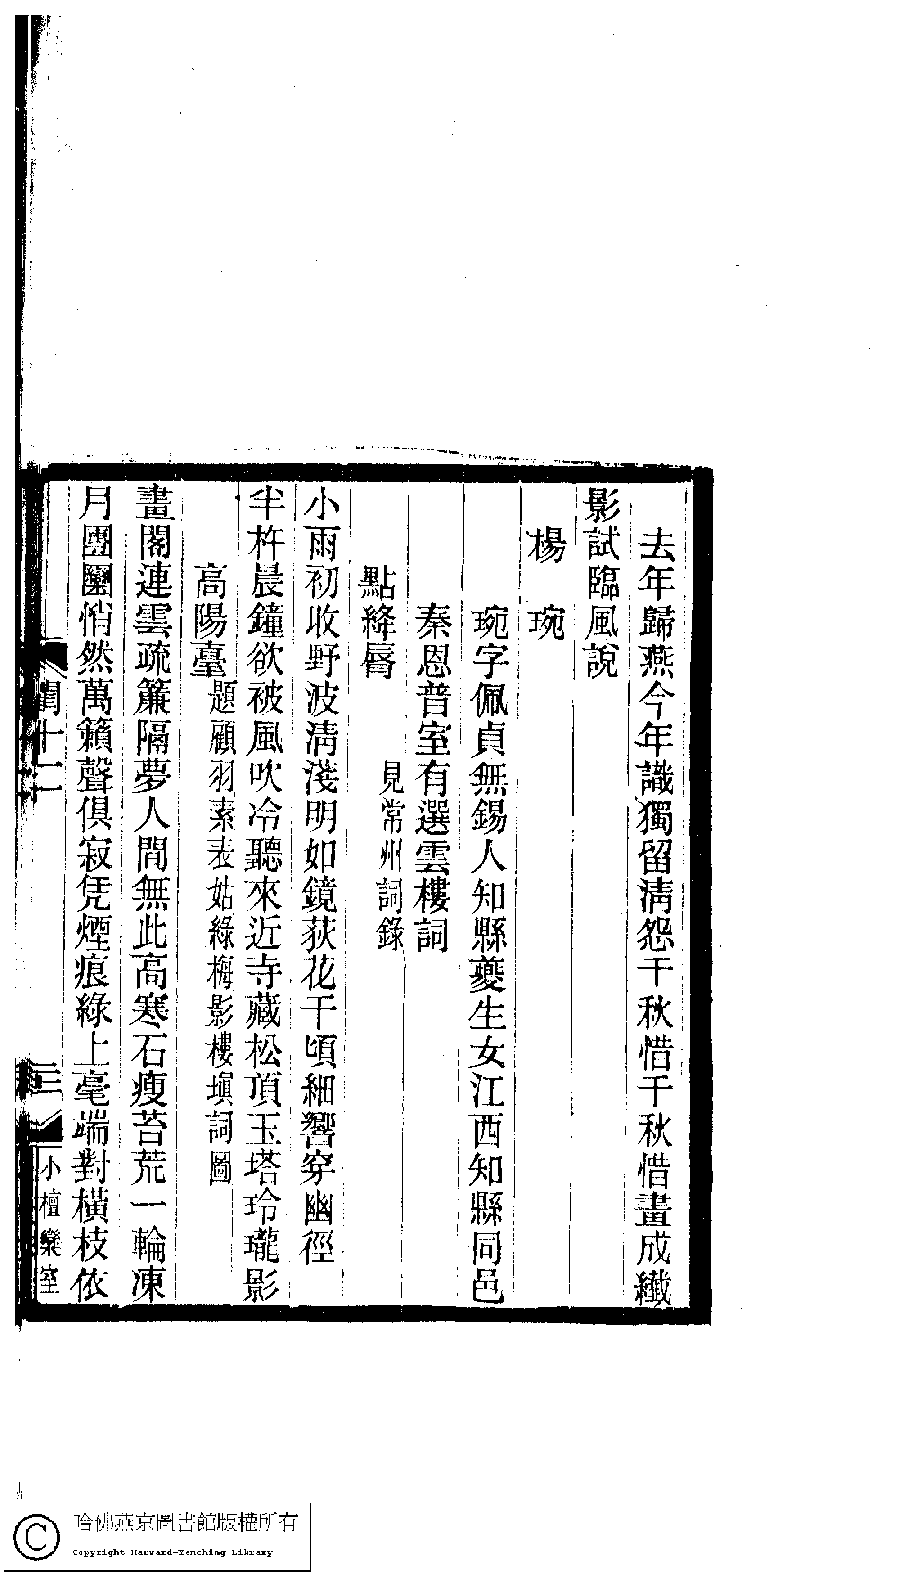 去年歸燕今年識獨留淸怨千秋惜千秋惜畫成纖
影試臨風說
楊琬
琬字佩貞無錫人知縣夔生女江西知縣同邑
秦恩普室有選雲樓詞
點絳脣
見常州詞錄
小雨初收野波淸淺明如鏡荻花千頃細響穿幽徑
半杵晨鐘欲被風吹冷聽來近寺藏松頂玉塔玲瓏影
高陽臺
題顧羽素表姑綠梅影樓塡詞圖
畫閣連雲疏簾隔夢人間無此高寒石瘦苔荒一輪凍
月團圞悄然萬籟聲俱寂凭煙痕綠上毫端對橫枝依
閨十二
三
小檀欒室
哈佛燕京圖書館版權所有
Copyright Harvard-Yenching Library